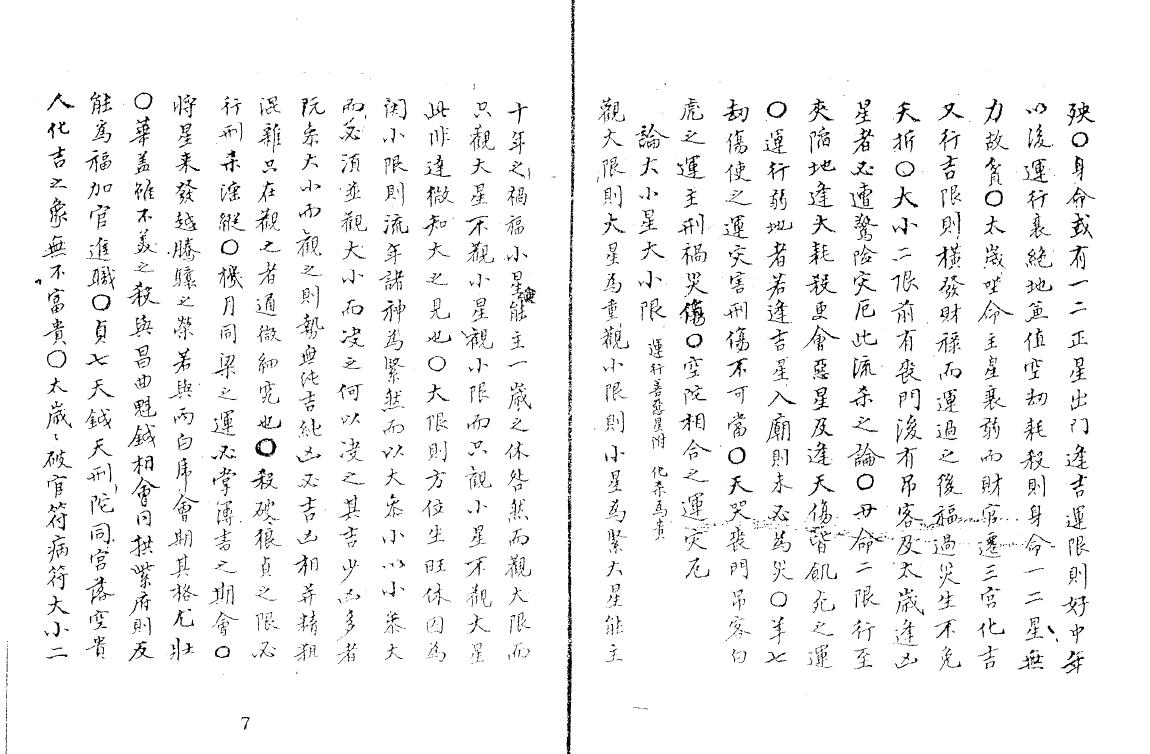 殃○身命或有一二正星出門逢吉運限則好中年
以後運行衰絕地並值空劫耗殺則身命一二星無
力故貧○太歲坐命主星衰弱而財官遷三宮化吉
又行吉限則橫發財祿而運過之後福過災生不免
夭折○大小二限前有喪門後有吊客及太歲逢凶
星者必遭驚險災厄此流杀之論○身命二限行至
夾陷地逢大耗殺更會惡星及逢天傷皆飢死之運
○運行弱地者若逢吉星入廟則未必為災○羊七
劫傷使之運災害刑傷不可當○天哭喪門吊客白
虎之運主刑禍哭傷○空陀相合之運災厄
論大小星大小限 運行善惡星附 化杀為貴
觀大限則大星為重觀小限則小星為緊大星能主
十年之禍福小星能主一歲之休咎然而觀大限而
只觀大星不觀小星觀小限而只觀小星不觀大星
此非達微知大之見也○大限則方位生旺休囚為
関小限則流年諸神為緊然而以大叅小以小叅大
而必須並觀大小而决之何以决之其吉少凶多者
既叅大小而觀之則勢無純吉純凶必吉凶相并精粗
混雜只在觀之者通微細究也○殺破狼貞之限必
行刑杀滛縱○機月同梁之運必掌簿書之期會○
將星来發越騰驤之榮若與兩白虎會期其格尤壯
○華盖雖不美之殺與昌曲魁鉞相會同拱紫府則反
能為福加官進職○貞七天鉞天刑陀同宮落空貴
人化吉之象無不富貴○太歲歲破官符病符大小二
7